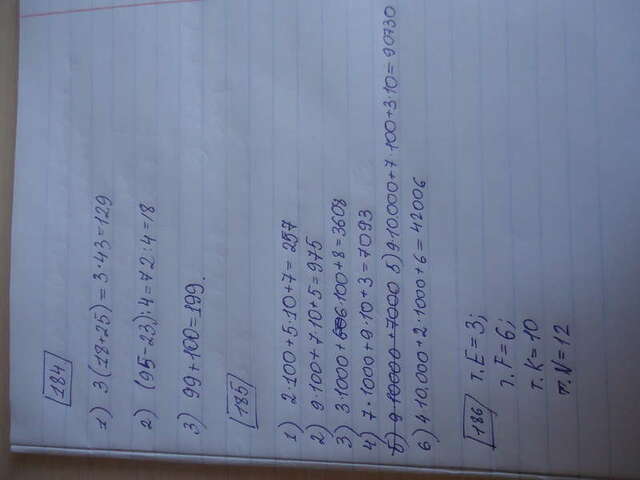 184
1) 3(18+25)=3·43=129
2) (95-23):4=72:4=18
3) 99+100=199.
185
1) 2·100+5·10+7=257
2) 9·100+7·10+5=975
3) 3·1000+6·100+8=3608
4) 7·1000+9·10+3=7093
5) 9·10000+7000 5) 9·10.000+7·100+3·10=90730
6) 4·10.000+2·1000+6=42006
186 т. E=3;
т. F=6;
т. K=10
т. N=12